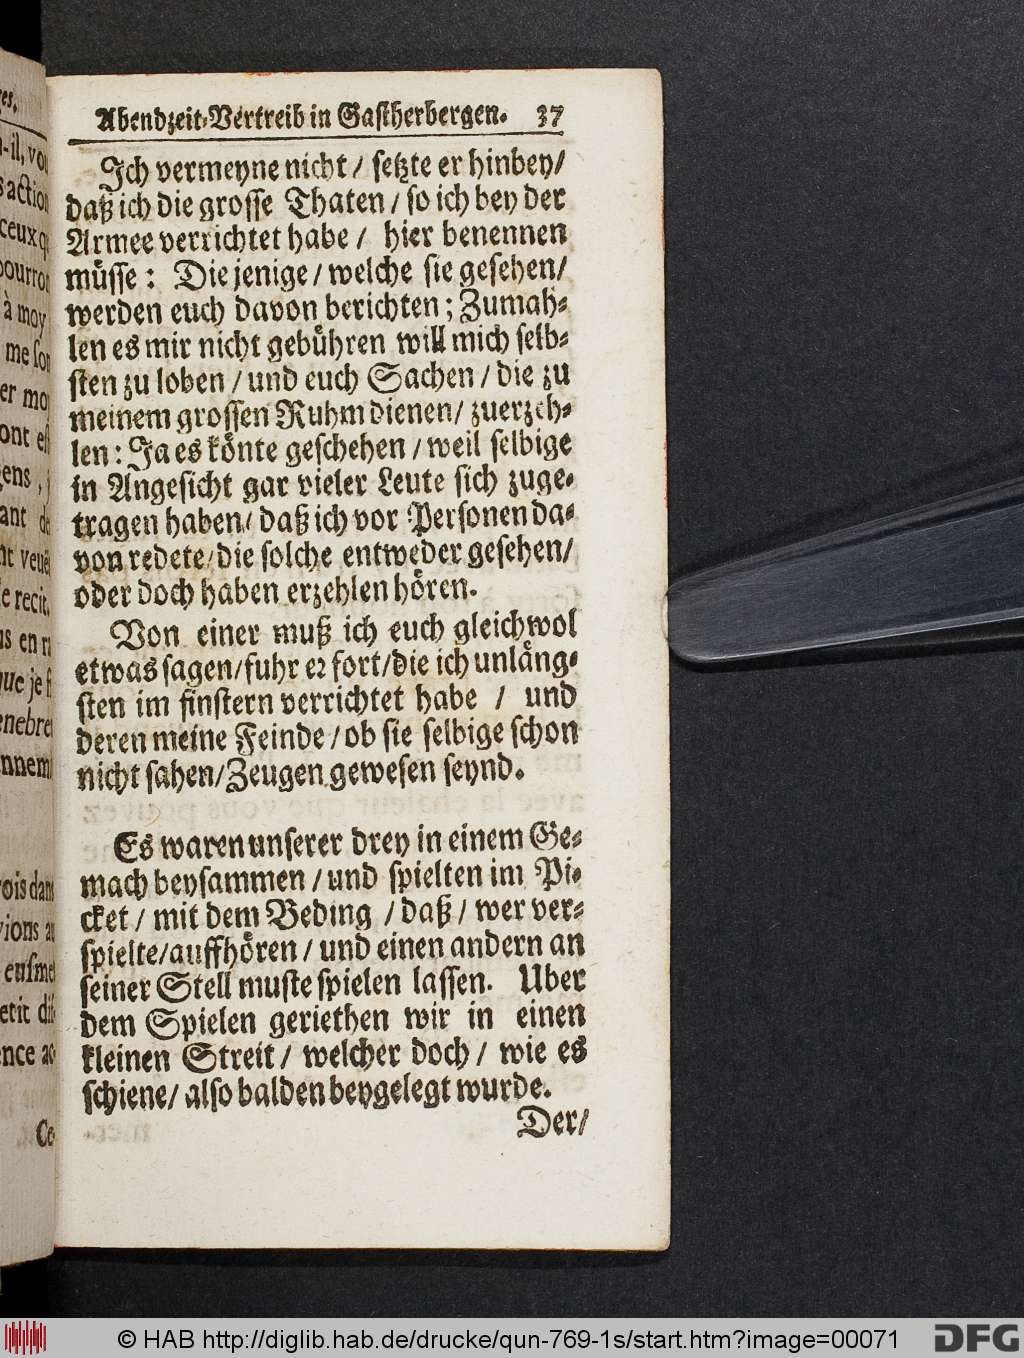 Abendzeit-Vertreib in Gastherbergen. 37
Ich vermeyne nicht / setzte er hinbey/
daß ich die grosse Thaten / so ich bey der
Armee verrichtet habe / hier benennen
müsse : Die jenige / welche sie gesehen/
werden euch davon berichten; Zumah-
len es mir nicht gebühren will mich selb-
sten zu loben / und euch Sachen / die zu
meinem grossen Ruhm dienen/ zuerzeh-
len: Ja es könte geschehen / weil selbige
in Angesicht gar vieler Leute sich zuge-
tragen haben/ daß ich vor Personen da-
von redete/ die solche entweder gesehen/
oder doch haben erzehlen hören.
Von einer muß ich euch gleichwol
etwas sagen/fuhr er fort/die ich unläng-
sten im finstern verrichtet habe / und
deren meine Feinde / ob sie selbige schon
nicht sahen/Zeugen gewesen seynd.
Es waren unserer drey in einem Ge-
mach beysammen / und spielten im Pi-
cket / mit dem Beding / daß / wer ver-
spielte/auffhören / und einen andern an
seiner Stell muste spielen lassen. Uber
dem Spielen geriethen wir in einen
kleinen Streit / welcher doch / wie es
schiene/ also balden beygelegt wurde.
Der/
ges.
-il, vou
action
ceux q
pourron
à moy
me son
er mo
ont est
gens , j
ant de
nt veuë
e recit.
us en
que je
enebre
nnem
ois dans
vions au
eusme
etit dis
ence ac
Ce-
© HAB http://diglib.hab.de/drucke/qun-769-1s/start.htm?image=00071
DFG